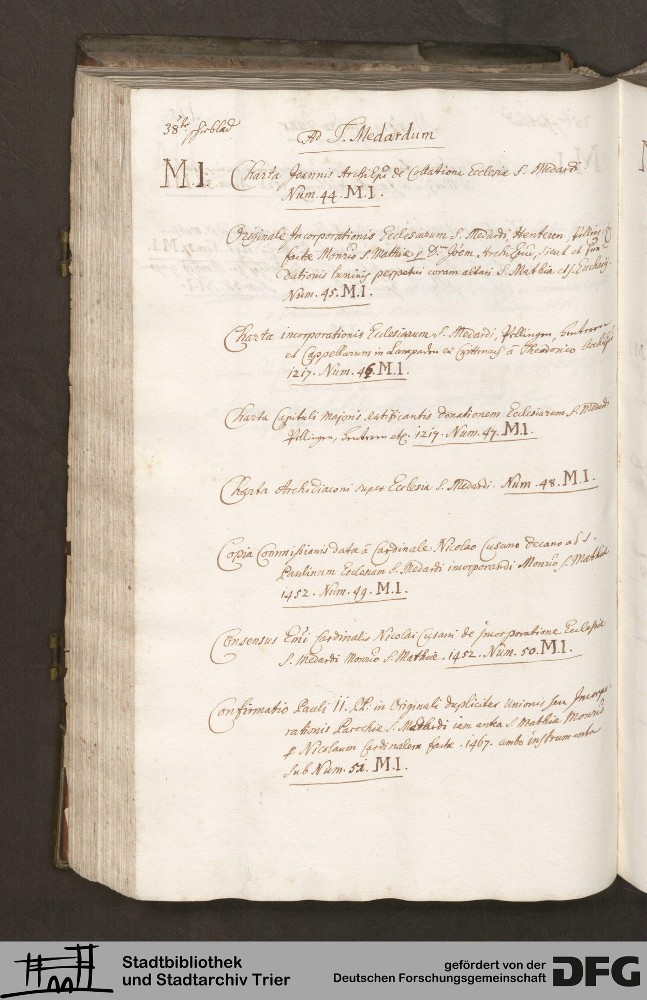 38te schieblad
Ad S. Medardum
M.I. Charta Joannis ArchiEpi de Collatione Ecclesiæ S. Medardi
Num. 44. M.I.
Originale Incorporationis Ecclesiarum S. Medardi, Henteren,
factæ Monrio S. Mathiæ p D. Joem ArchiEpum, sicut et fun-
dationis luminis perpetui coram altari S. Mathiæ et S. Eucharij.
Num. 45. M.I.
Charta incorporationis Ecclesiarum S. Medardi, Pöllingen, Hentern
et Cappellarum in Lampaden et a Theodorico
1217. Num. 46. M.I.
Charta Capituli Majoris Ratificantis donationem Ecclesiarum S. Medardi
Pellingen, Hentern etc. 1217. Num. 47. M.I.
Charta Archidiaconi super Ecclesia S. Medardi. Num. 48. M.I.
Copia Commissionis data à Cardinale Nicolao Cusano decano ad S.
Paulinum Ecclesiam S. Medardi incorporandi Monrio S. Mathiæ
1452. Num. 49. M.I.
Consensus Emi Cardinalis Nicolai Cusani de incorporatione Ecclesiæ
S. Medardi Monrio S. Mathiæ. 1452. Num. 50. M.I.
Confirmatio Pauli II. PP. in Originali dupliciter Unionis seu Incorpo-
rationis Parochiæ S. Medardi jam antea S. Mathiæ Monrio
p Nicolaum Cardinalem factæ. 1467. ambo instrumenta
sub Num. 51. M.I.
Stadtbibliothek
und Stadtarchiv Trier
gefördert von der
Deutschen Forschungsgemeinschaft
DFG